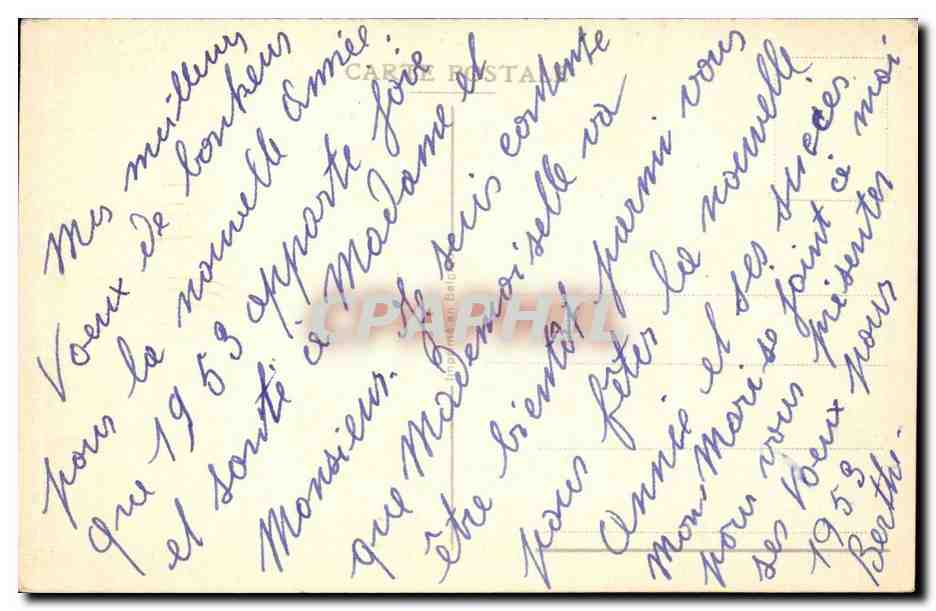 CARTE POSTALE
Mes meilleurs
Voeux de bonheur
pour la nouvelle année.
que 1953 apporte joie
et santé à Madame et
Monsieur. Je suis contente
que Mademoiselle va
être bientôt parmi vous
pour fêter la nouvelle
année et ses succès
mons Marise joint à moi
pour vous présenter
ses Voeux pour
1953
Berthe.
Imprimé en Belg
CPAPHIL